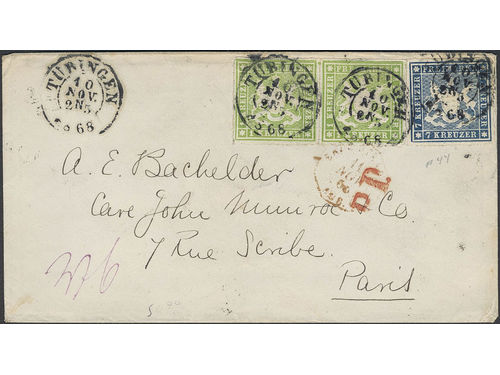 TÜBINGEN
10
NOV.
2N5
68
TÜBINGEN
10
NOV.
2N5
68
TÜBINGEN
10
NOV.
2N5
68
10
NOV.
68
7 KREUZER
7 KREUZER
P.D.
A. E. Bachelder
Care John Munroe Co.
7 Rue Scribe.
Paris